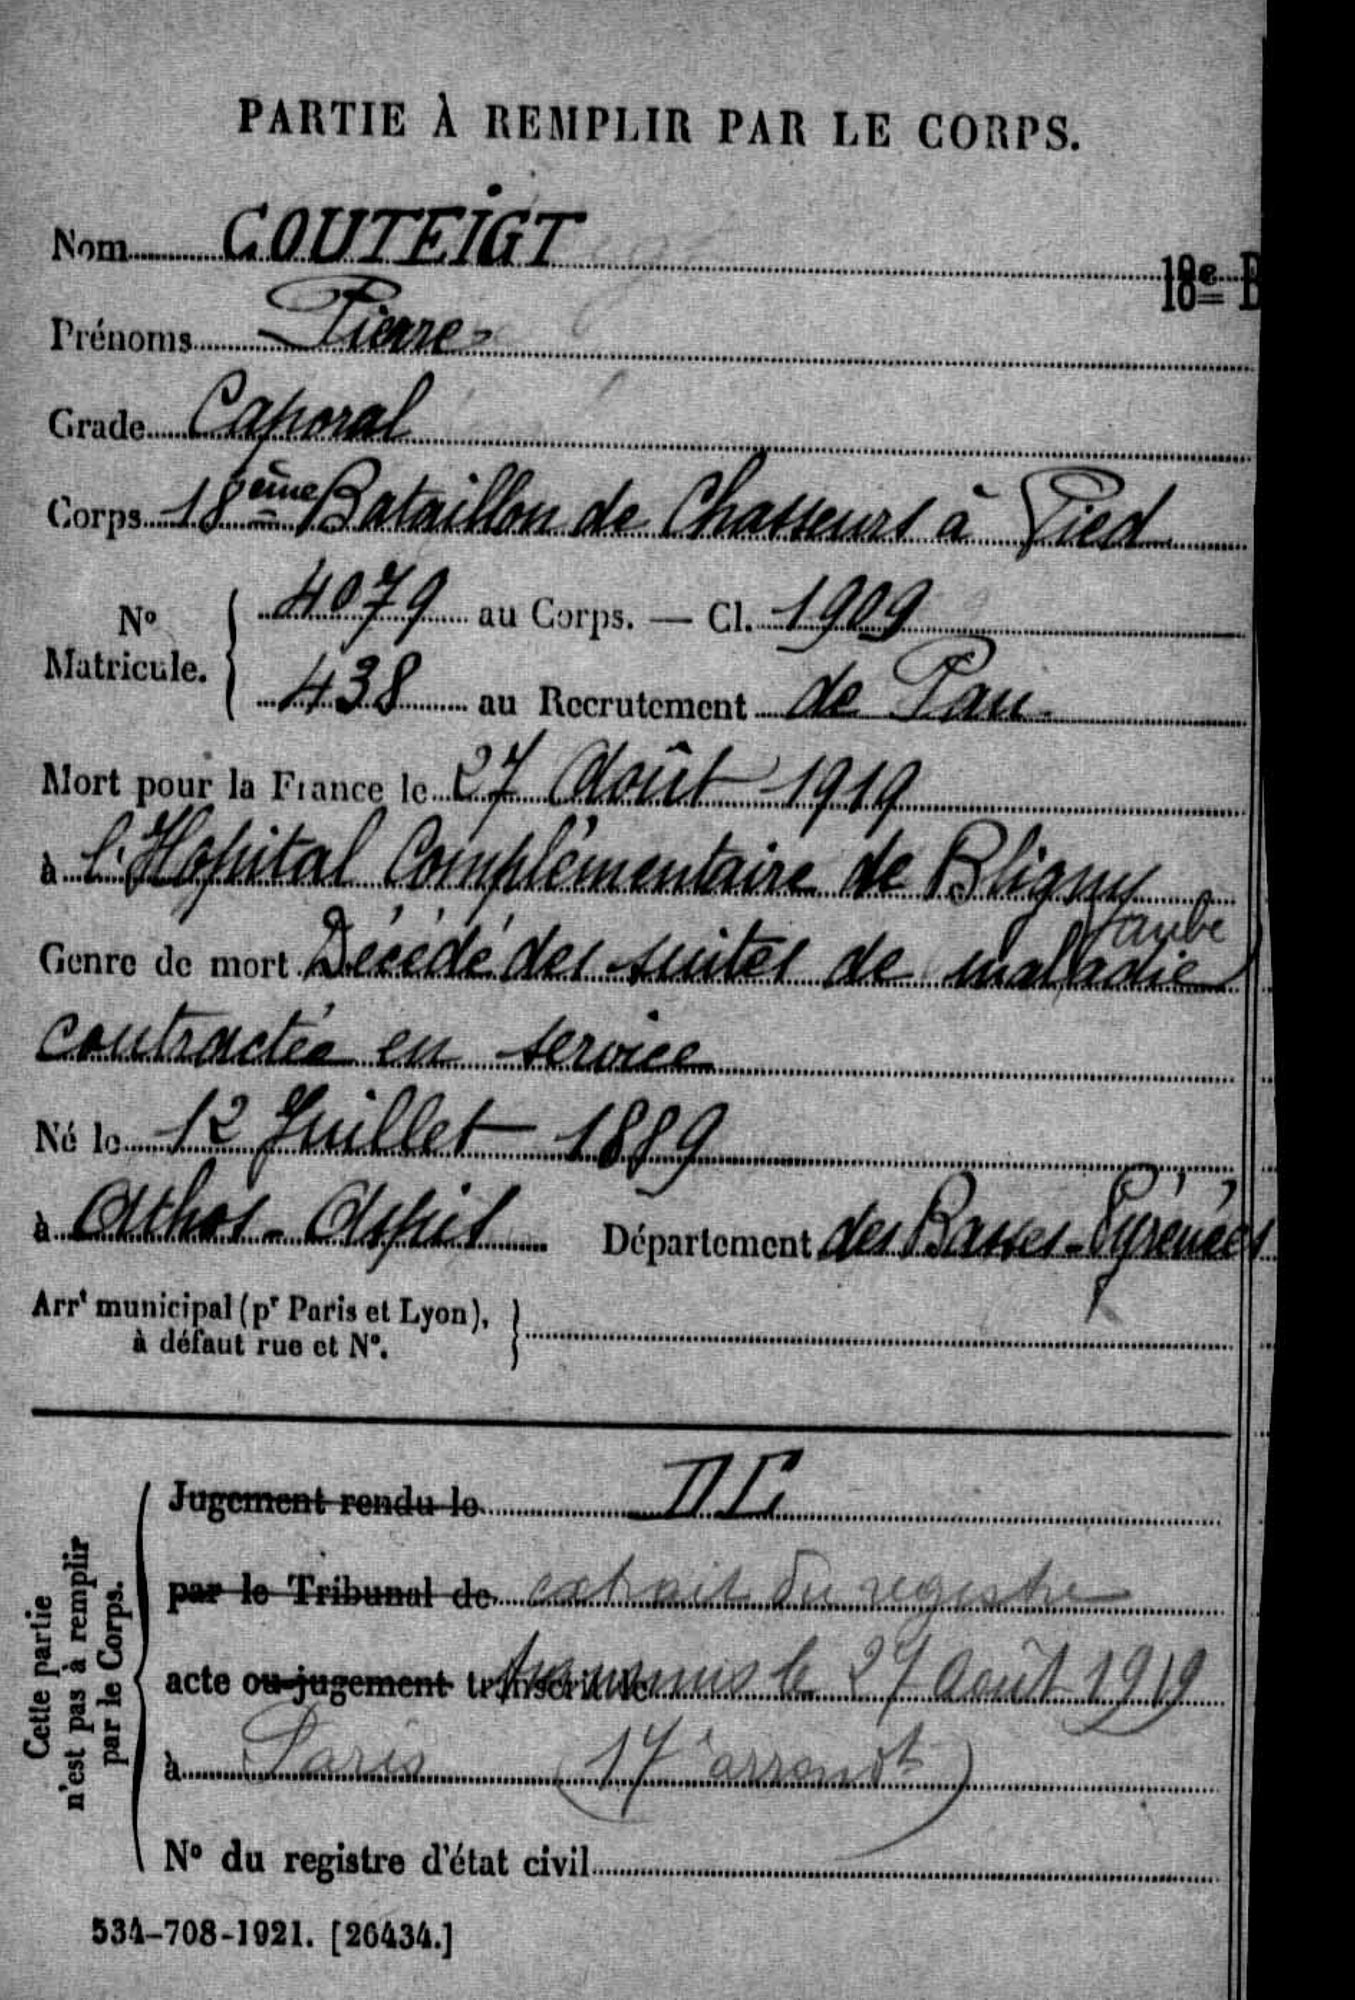 PARTIE À REMPLIR PAR LE CORPS.
Nom COUTEIGT
18e B
Prénoms Pierre
Grade Caporal
Corps 18ème Bataillon de Chasseurs à Pied
No Maticule. 4079 au Corps. — Cl. 1909
438 au Recrutement de Pau
Mort pour la France le 27 Août 1919
à l'Hopital Complémentaire de Bligny
aube
Genre de mort Décédé des suites de maladie
contractée en service
Né le 12 Juillet 1889
à Athos-Aspis Département des Basses-Pyrénées
Arrt municipal (pr Paris et Lyon),
à défaut rue et No.
Cette partie
n'est pas à remplir
par le Corps.
Jugement rendu le
par le Tribunal de extrait du registre
acte ou jugement transcrit le transmis le 27 août 1919
à Paris (17e arrondt)
No du registre d'état civil
534-708-1921. [26434.]